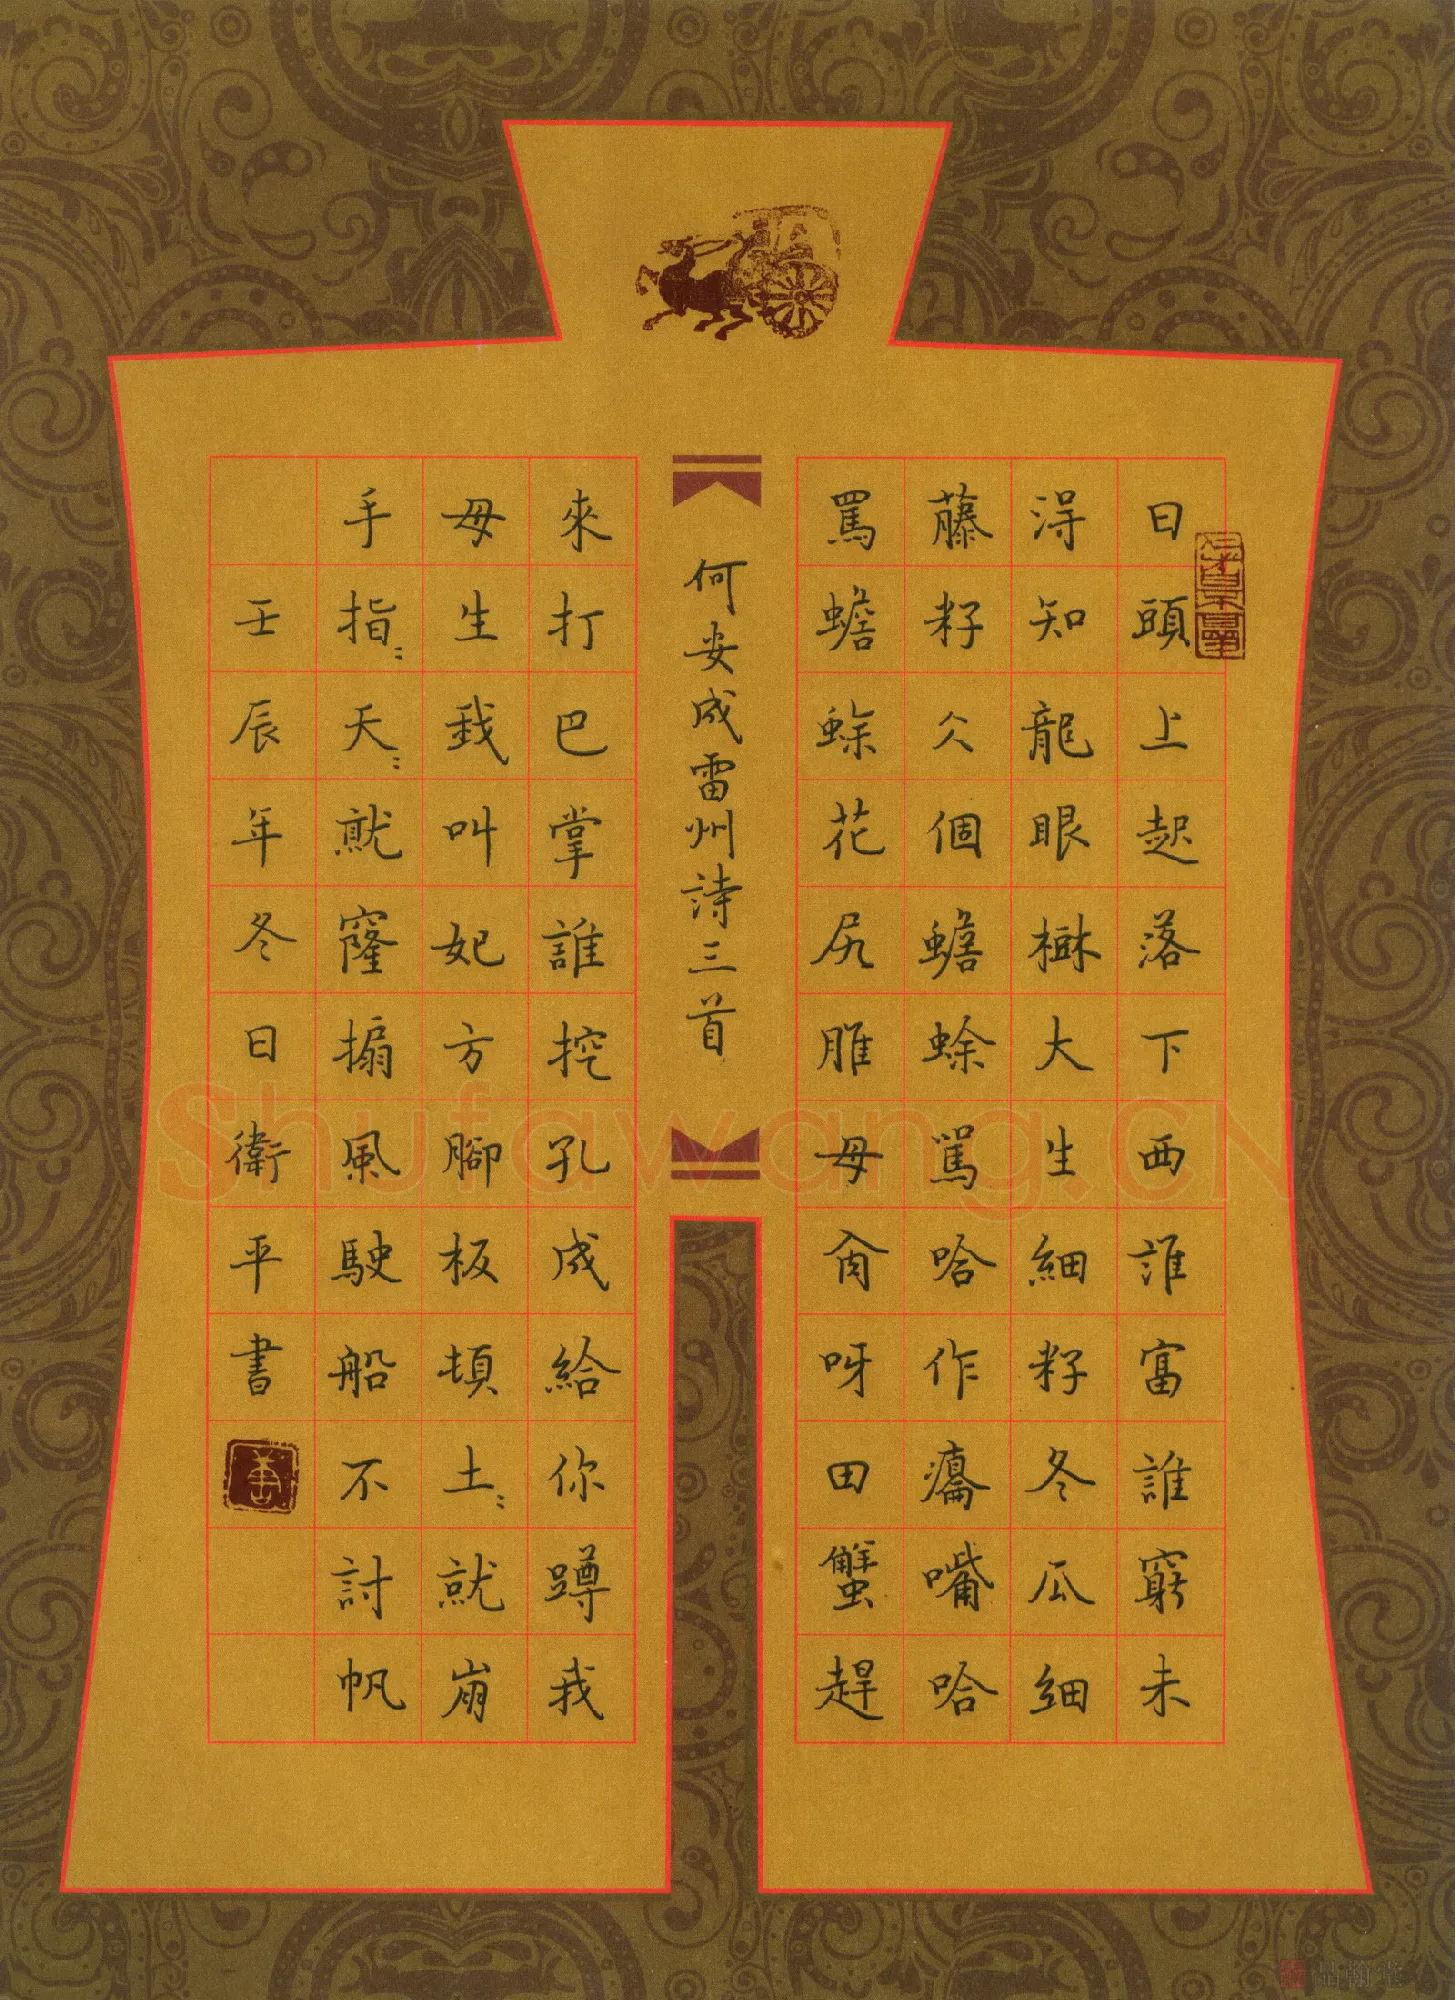 日頭上起落下西誰富誰窮未
得知龍眼樹大生細籽冬瓜細
藤籽仌個蟾蜍罵哈作癟嘴哈
罵蟾蜍花尻脽母肏呀田蟹趕
何安成雷州詩三首
來打巴掌誰挖孔成給你蹲我
母生我叫妃方腳板頓土〻就崩
手指〻天〻就窿搧風駛船不討帆
壬辰年冬日衛平書
Shufawang.CN